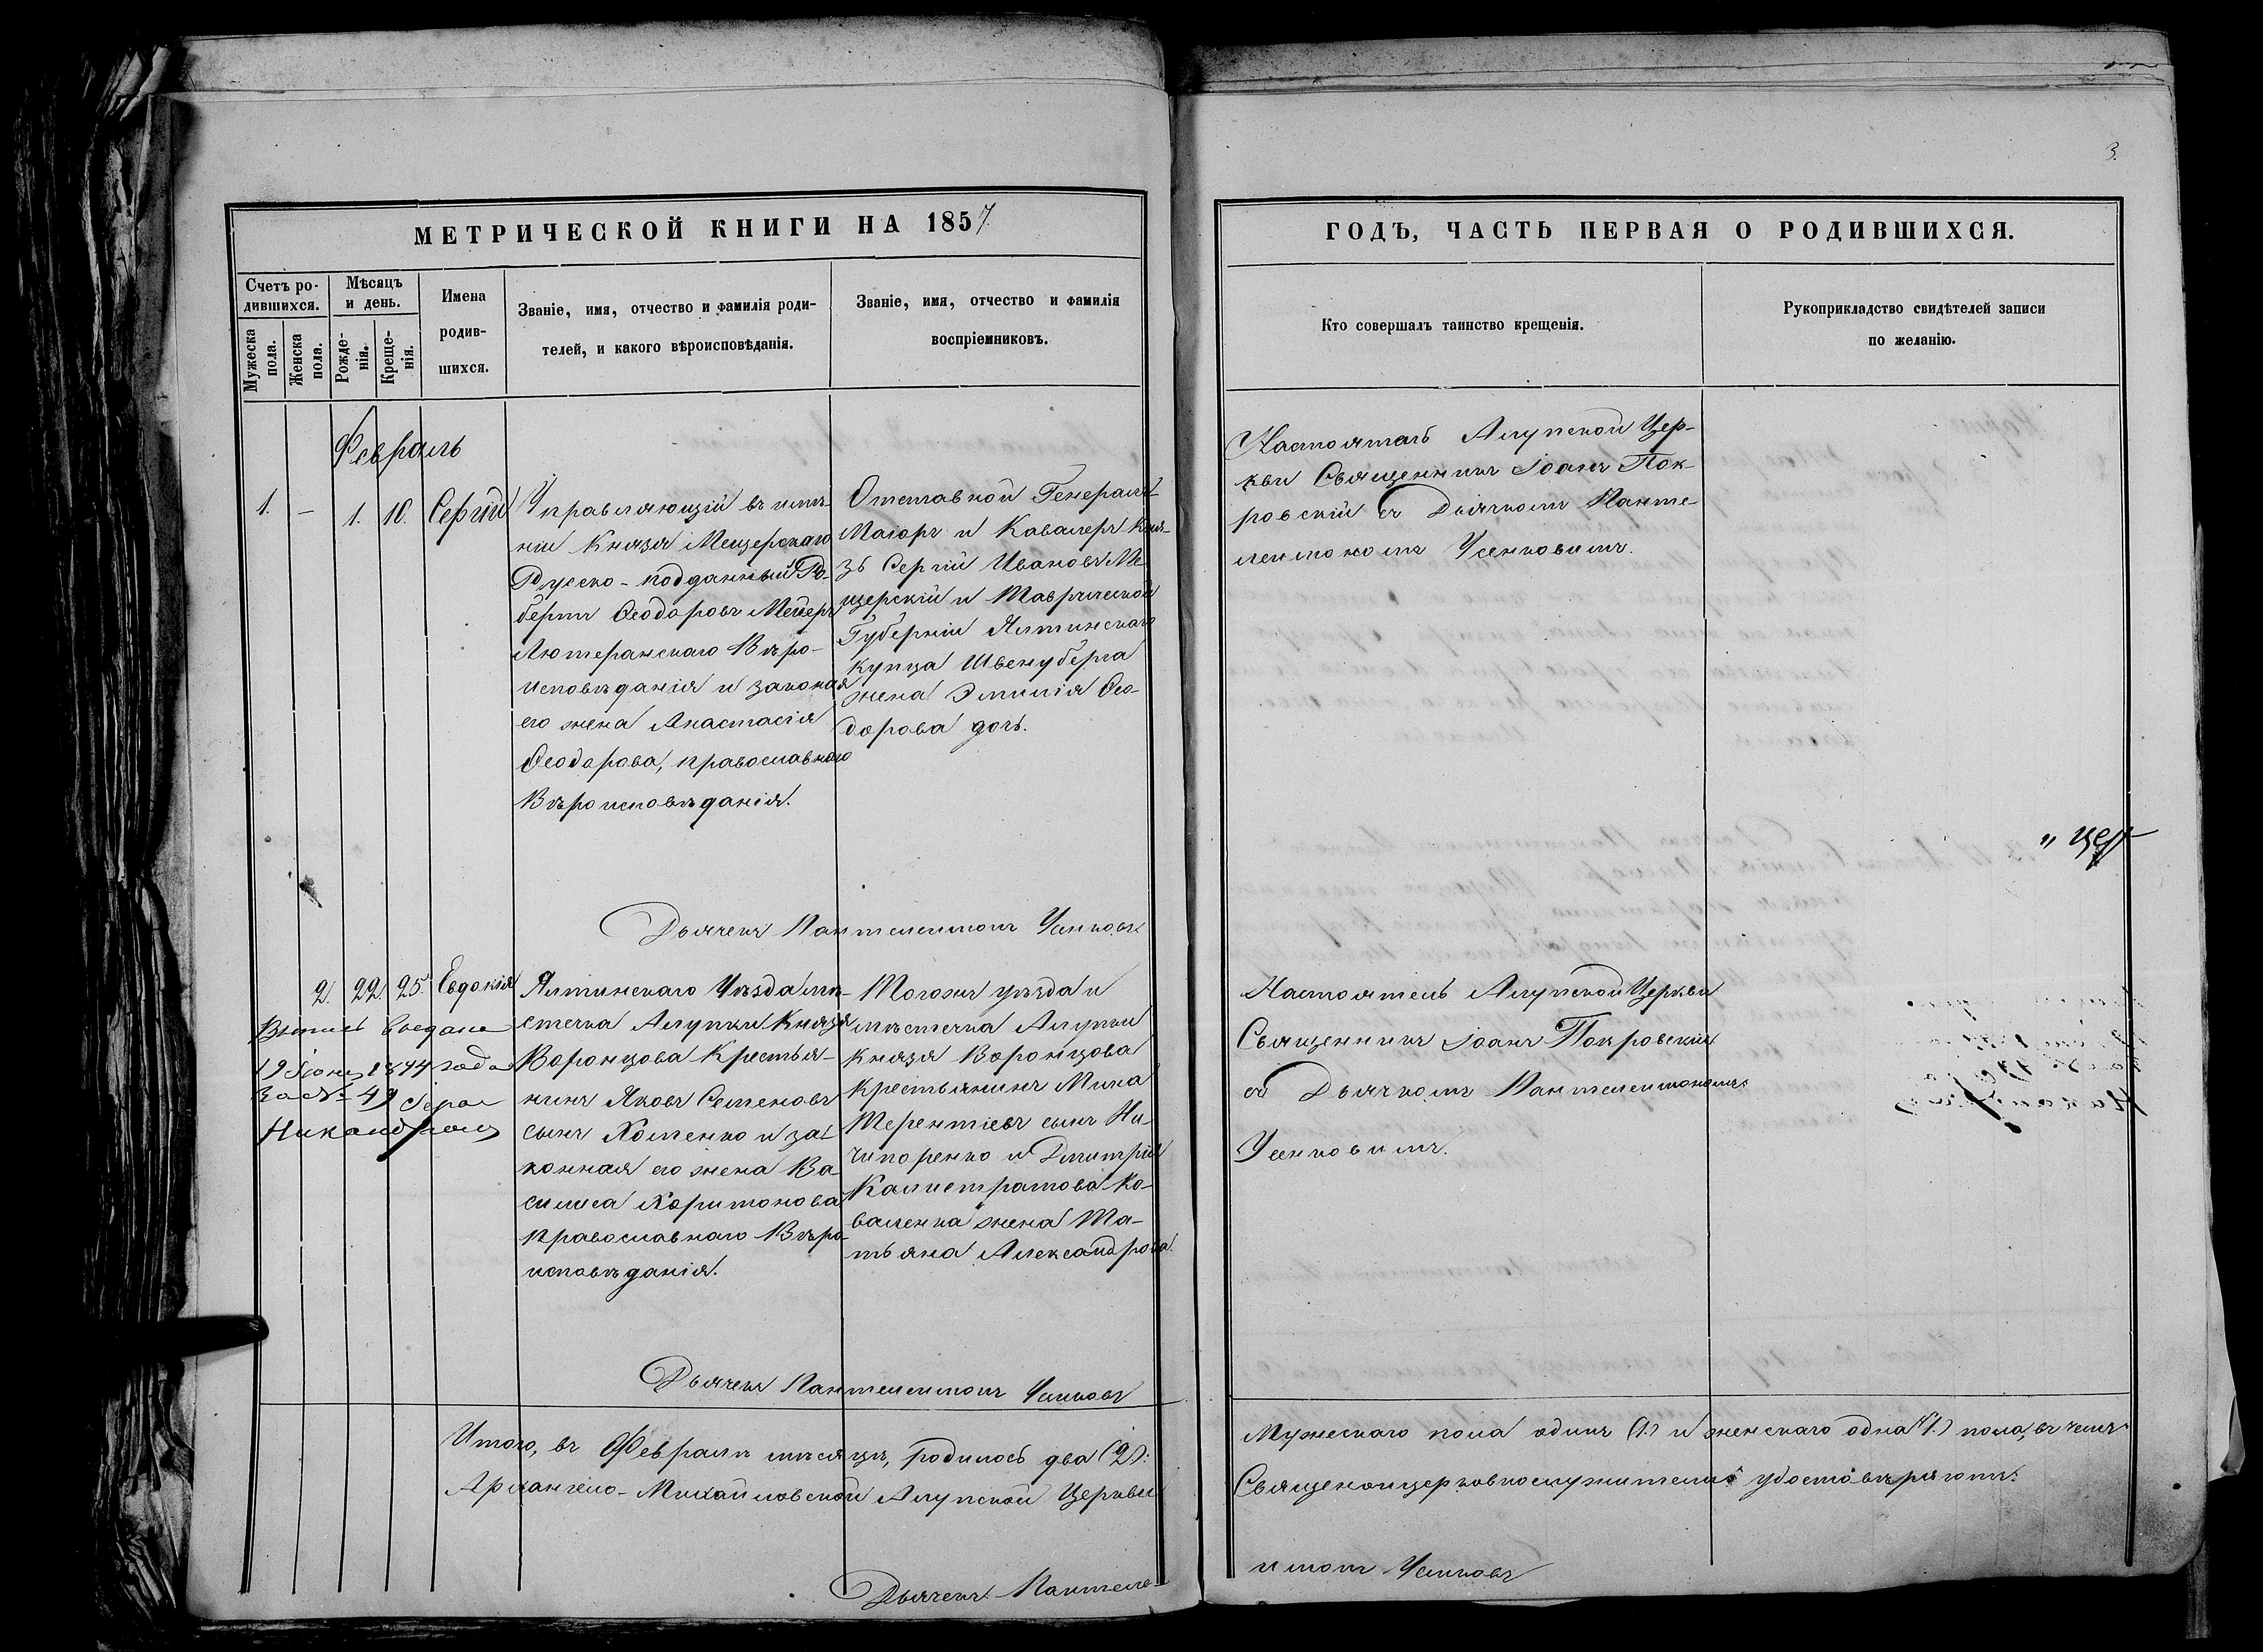 3.
МЕТРИЧЕСКОЙ КНИГИ НА 1857.
Счетъ ро-
дившихся.
Мужеска
пола.
Женска
пола.
Мѣсяцъ
и день.
Рожде-
нія.
Креще-
нія.
Имена
родив-
шихся.
Званіе, имя, отчество и фамилія роди-
телей, и какого вѣроисповѣданія.
Званіе, имя, отчество и фамилія
воспріемниковъ.
Февраль
1. – 1. 10. Сергій
Управляющій въ имѣ-
ніи Князя Мещерскаго
Руско-подданный Ро-
бертъ Ѳеодоровъ Мейеръ
Лютеранскаго Вѣро-
исповѣданія и законая
его жена Анастасія
Ѳеодорова, православнаго
Вѣроисповѣданія.
Отставной Генералъ-
Маіоръ и Кавалеръ Кня-
зь Сергій Ивановъ Ме-
щерскій и Таврической
Губерніи Ялтинскаго
купца Швенуберга
жена Эмилія Ѳео-
дорова дочь.
Дьячекъ Пантелеимонъ Усенковъ
2. 22. 25. Евдокія
Выпись выдана
19 Іюня 1844 года
за № 49 Іерей
Никандровъ
Ялтинскаго Уѣзда мѣ-
стечка Алупки Князя
Воронцова Крестья-
нинъ Яковъ Семеновъ
сынъ Хоменко и за-
конная его жена Ва-
силиса Харитонова
православнаго Вѣро-
исповѣданія.
Тогожъ уѣзда и
мѣстечка Алупки
Князя Воронцова
крестьянинъ Мина
Терентіевъ сынъ Ни-
чипоренко и Дмитрія
Калистратова Ко-
валенка жена Та-
тьяна Александрова.
Дьячекъ Пантелеимонъ Усенковъ
Итого, въ Февралѣ мѣсяцѣ, родилось два (2):
Архангело-Михайловской Алупской Церкви
Дьячекъ Пантеле-
ГОДЪ, ЧАСТЬ ПЕРВАЯ О РОДИВШИХСЯ.
Кто совершалъ таинство крещенія.
Рукоприкладство свидѣтелей записи
по желанію.
Настоятель Алупской Цер-
кви Священникъ Іоанъ Пок-
ровскій съ Дьячкомъ Панте-
леимономъ Усенковымъ.
" цер
Настоятель Алупской Церкви
Священникъ Іоанъ Покровскій
съ Дьячкомъ Пантелеимономъ
Усенковымъ.
Мужескаго пола одинъ (1.) и женскаго одна (1.) пола, въ чемъ
Священоицерковнослужители удостовѣряютъ:
имонъ Усенковъ